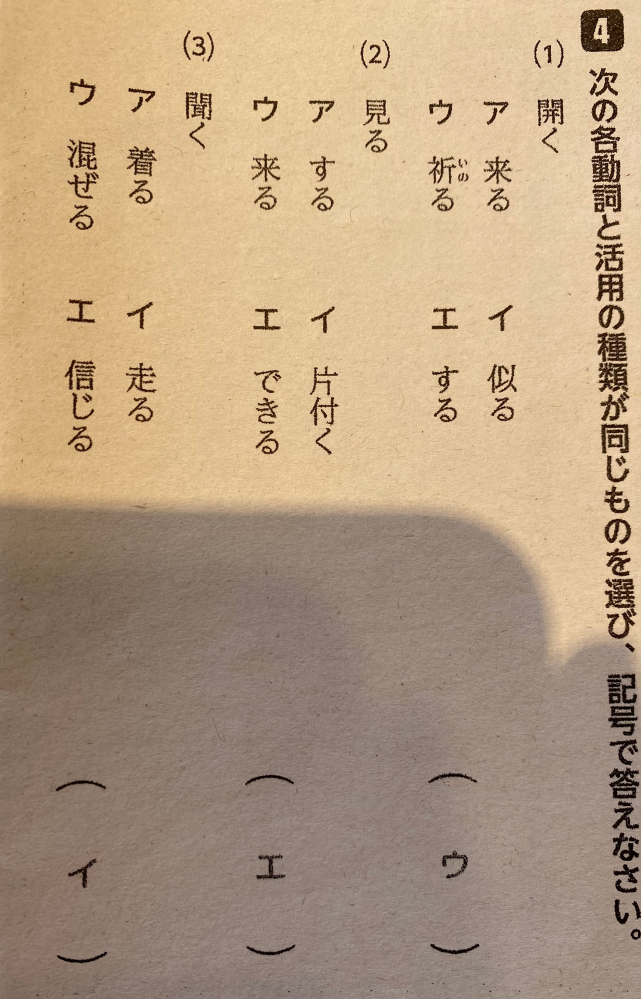 4 次の各動詞と活用の種類が同じものを選び、記号で答えなさい。
(1) 開く
ア 来る イ 似る
ウ 祈る エ する (ウ)
いの
(2) 見る
ア する イ 片付く
ウ 来る エ できる (エ)
(3) 聞く
ア 着る イ 走る
ウ 混ぜる エ 信じる (イ)